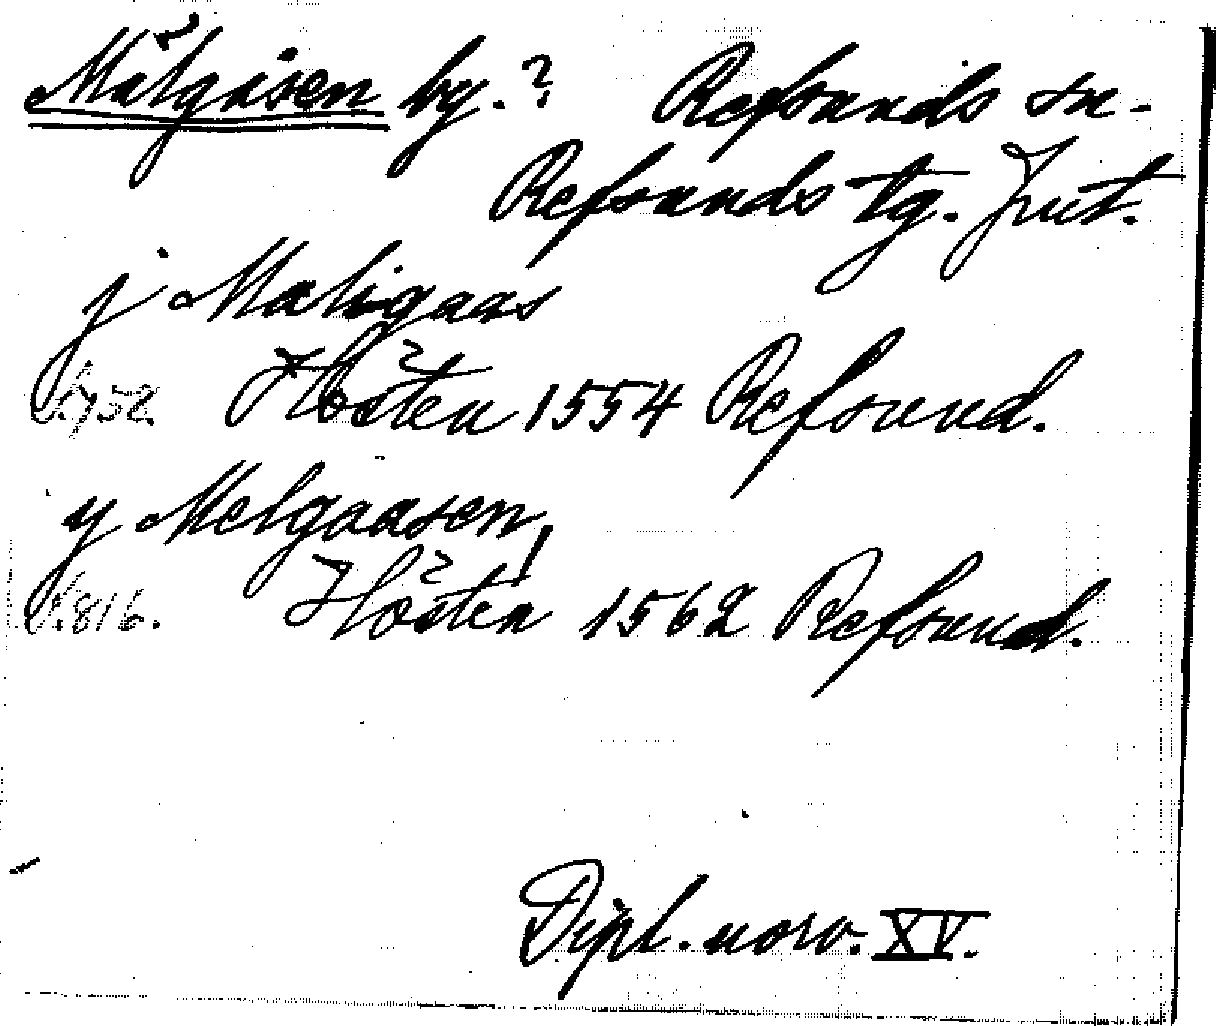 Målgåsen by.? Refsunds sn-
Refsunds tg. Jmt.
j Maligaas
s. 752. Hösten 1554 Refsund.
y Melgaasen,
s. 816. Hösten 1562 Refsund.
Dipl. norv. XV.